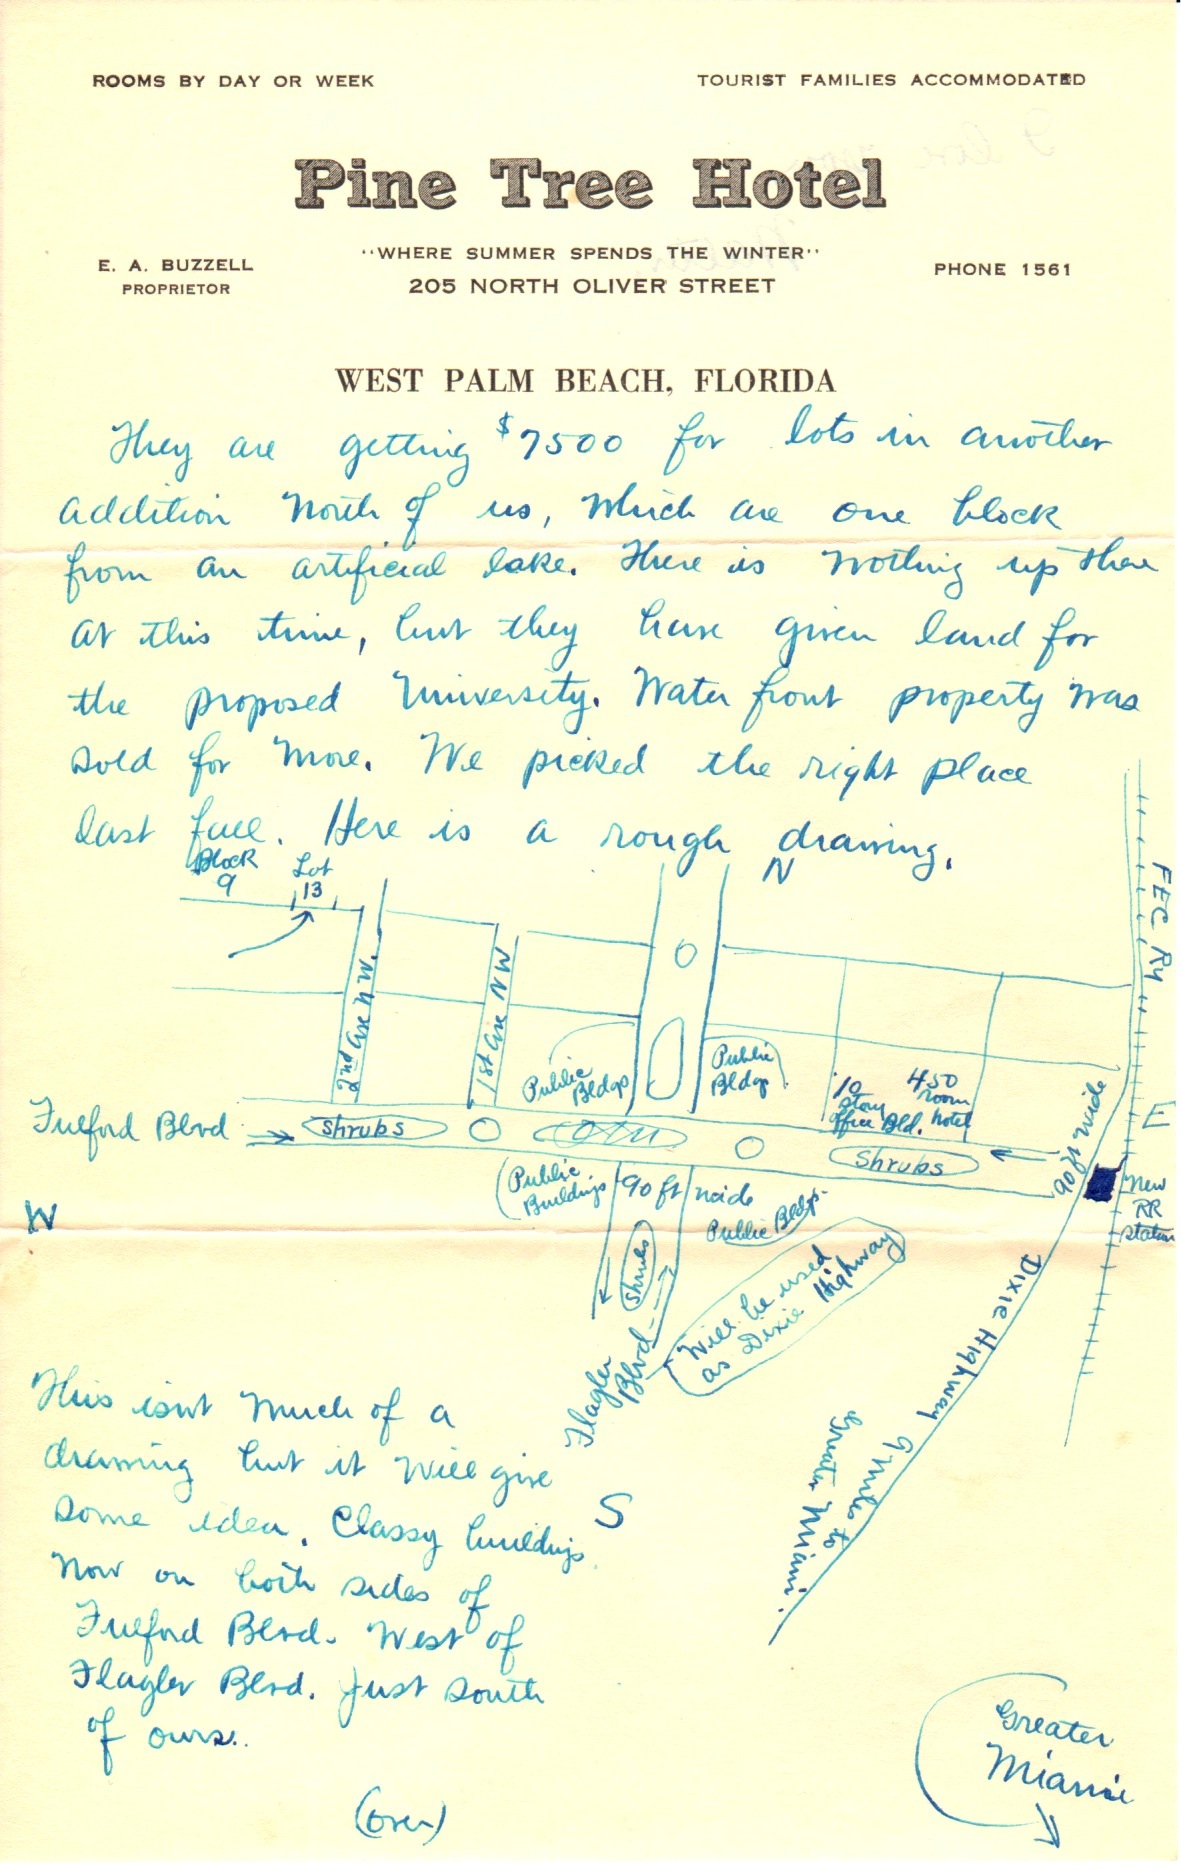 ROOMS BY DAY OR WEEK
TOURIST FAMILIES ACCOMMODATED
Pine Tree Hotel
"WHERE SUMMER SPENDS THE WINTER"
E. A. BUZZELL
PROPRIETOR
205 NORTH OLIVER STREET
PHONE 1561
WEST PALM BEACH, FLORIDA
They are getting $7500 for lots in another
addition North of us, which are one block
from an artificial lake. There is nothing up there
at this time, but they have given land for
the proposed University. Water front property was
sold for more. We picked the right place
last fall. Here is a rough drawing.
Block
9
Lot
13
N
FEC Ry
2nd Ave N.W.
1st Ave NW
Public
Bldgs
Public
Bldgs
10
story
office Bld.
450
room
hotel
90 ft wide
E
Fulford Blvd
Shrubs
Shrubs
New
RR
station
W
Public
Buildings
90 ft wide
Public Bldgs.
Shrubs
Will be used
as Dixie Highway
Flagler
Blvd
Dixie Highway 9 miles to
Greater Miami.
S
This isnt much of a
drawing but it will give
some idea. Classy buildings
now on both sides of
Fulford Blvd. West of
Flagler Blvd. Just south
of ours.
Greater
Miami
(over)